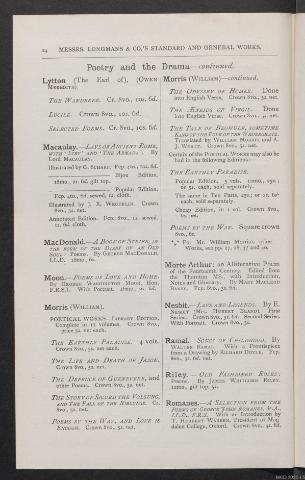 24 MESSRS. LONGMANS & CO.'S STANDARD AND GENERAL WORKS.
Poetry and the Drama—continued.
Lytton (The Earl of), (OWEN
MEREDITH).
THE WANDERER. Cr. 8vo., 10s. 6d.
LUCILE. Crown 8vo., 10s. 6d.
SELECTED POEMS. Cr. 8vo., 10s. 6d.
Macaulay.—LAYS OF ANCIENT ROME,
WITH 'IVRY' AND 'THE ARMADA'. By
LORD MACAULAY.
Illustrated by G. SCHARF. Fcp. 4to., 10s. 6d.
Bijou Edition.
18mo., 2s. 6d. gilt top.
Popular Edition.
Fcp. 4to., 6d. sewed, 1s. cloth.
Illustrated by J. R. WEGUELIN. Crown
8vo., 3s. net.
Annotated Edition. Fcp. 8vo., 1s. sewed,
1s. 6d. cloth.
MacDonald.—A BOOK OF STRIFE, IN
THE FORM OF THE DIARY OF AN OLD
SOUL: Poems. By GEORGE MACDONALD,
LL.D. 18mo., 6s.
Moon.—POEMS OF LOVE AND HOME.
By GEORGE WASHINGTON MOON, Hon.
F.R.S.L. With Portrait. 16mo., 2s. 6d.
Morris (WILLIAM).
POETICAL WORKS. LIBRARY EDITION.
Complete in 11 volumes. Crown 8vo.,
price 5s. net each.
THE EARTHLY PARADISE. 4 vols.
Crown 8vo., 5s. net each.
THE LIFE AND DEATH OF JASON.
Crown 8vo., 5s. net.
THE DEFENCE OF GUENEVERE, and
other Poems. Crown 8vo., 5s. net.
THE STORY OF SIGURD THE VOLSUNG,
AND THE FALL OF THE NIBLUNGS. Cr.
8vo., 5s. net.
POEMS BY THE WAY, AND LOVE IS
ENOUGH. Crown 8vo., 5s. net.
Morris (WILLIAM)—continued.
THE ODYSSEY OF HOMER. Done
into English Verse. Crown 8vo., 5s. net.
THE ÆNEIDS OF VIRGIL. Done
into English Verse. Crown 8vo., 5s. net.
THE TALE OF BEOWULF, SOMETIME
KING OF THE FOLK OF THE WEDERGEATS.
Translated by WILLIAM MORRIS and A.
J. WYATT. Crown 8vo., 5s. net.
Certain of the POETICAL WORKS may also be
had in the following Editions:—
THE EARTHLY PARADISE.
Popular Edition. 5 vols. 12mo., 25s.;
or 5s. each, sold separately.
The same in Ten Parts, 25s.; or 2s. 6d.
each, sold separately.
Cheap Edition, in 1 vol. Crown 8vo.,
6s. net.
POEMS BY THE WAY. Square crown
8vo., 6s.
For Mr. William Morris's other
Works, see pp.
Morte Arthur: an Alliterative Poem
of the Fourteenth Century. Edited from
the Thornton MS., with Introduction,
Notes and Glossary. By MARY MACLEOD
BANKS. Fcp. 8vo., 3s. 6d.
Nesbit.—LAYS AND LEGENDS. By E.
NESBIT (Mrs. HUBERT BLAND). First
Series. Crown 8vo., 3s. 6d. Second Series.
With Portrait. Crown 8vo., 5s.
Ramal.—SONGS OF CHILDHOOD. By
WALTER RAMAL. With a Frontispiece
from a Drawing by RICHARD DOYLE. Fcp.
8vo., 3s. 6d. net.
Riley.—OLD FASHIONED ROSES:
Poems. By JAMES WHITCOMB RILEY.
12mo., gilt top, 5s.
Romanes.—A SELECTION FROM THE
POEMS OF GEORGE JOHN ROMANES, M.A.,
LL.D., F.R.S. With an Introduction by
T. HERBERT WARREN, President of Mag-
dalen College, Oxford. Crown 8vo., 4s. 6d.